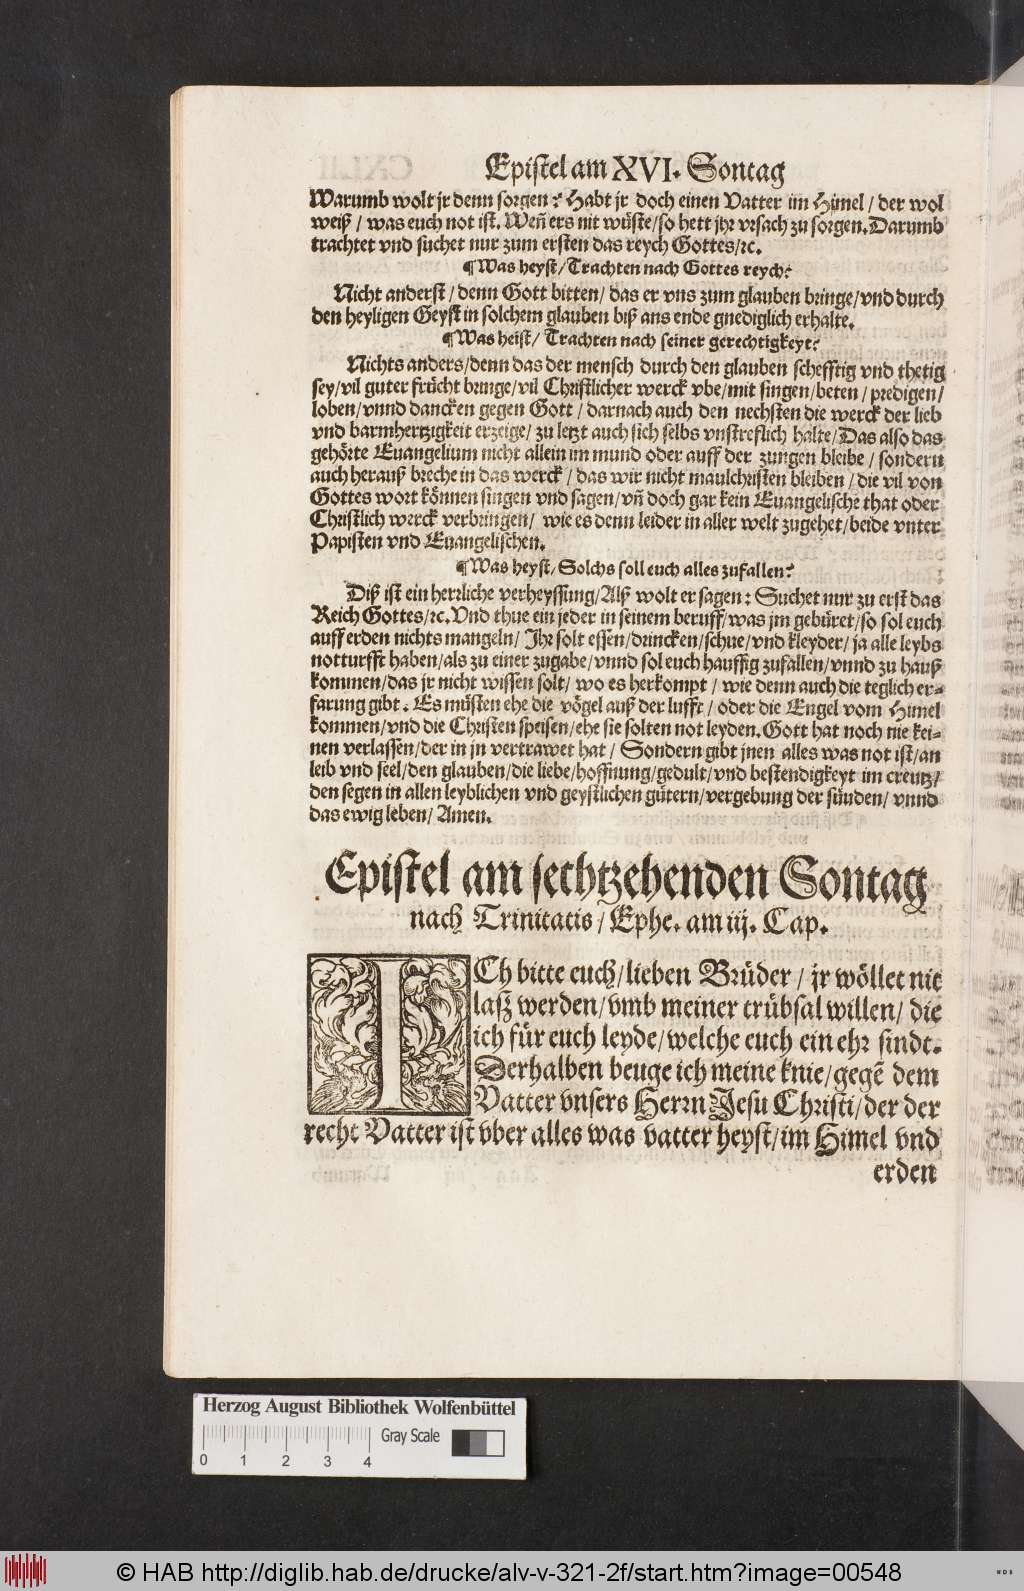 Epistel am XVI. Sontag
Warumb wolt jr denn sorgen? Habt jr doch einen Vatter im Himel / der wol
weiß / was euch not ist. Weñ ers nit wüste/so hett jhr vrsach zu sorgen. Darumb
trachtet vnd suchet nur zum ersten das reych Gottes/ꝛc.
¶Was heyst/Trachten nach Gottes reych?
Nicht anderst / denn Gott bitten/ das er vns zum glauben bringe/vnd durch
den heyligen Geyst in solchem glauben biß ans ende gnediglich erhalte.
¶Was heist/ Trachten nach seiner gerechtigkeyt?
Nichts anders/denn das der mensch durch den glauben schefftig vnd thetig
sey/vil guter frücht bringe/vil Christlicher werck vbe/mit singen/beten/ predigen/
loben/vnnd dancken gegen Gott / darnach auch den nechsten die werck der lieb
vnd barmhertzigkeit erzeige/ zu letzt auch sich selbs vnstreflich halte/Das also das
gehörte Euangelium nicht allein im mund oder auff der zungen bleibe / sondern
auch herauß breche in das werck / das wir nicht maulchristen bleiben / die vil von
Gottes wort können singen vnd sagen/vñ doch gar kein Euangelische that oder
Christlich werck verbringen/ wie es denn leider in aller welt zugehet/beide vnter
Papisten vnd Euangelischen.
¶Was heyst/Solchs soll euch alles zufallen?
Diß ist ein herrliche verheyssung/Alß wolt er sagen: Suchet nur zu erst das
Reich Gottes/ꝛc. Vnd thue ein jeder in seinem beruff/was jm gebüret/so sol euch
auff erden nichts mangeln/ Jhr solt essen/drincken/schue/vnd kleyder/ ja alle leybs
notturfft haben/als zu einer zugabe/vnnd sol euch hauffig zufallen/vnnd zu hauß
kommen/das jr nicht wissen solt/ wo es herkompt / wie denn auch die teglich er-
farung gibt. Es müsten ehe die vögel auß der lufft / oder die Engel vom Himel
kommen/vnd die Christen speisen/ehe sie solten not leyden. Gott hat noch nie kei-
nen verlassen/der in jn vertrawet hat / Sondern gibt jnen alles was not ist/an
leib vnd seel/den glauben/die liebe/hoffnung/gedult/vnd bestendigkeyt im creutz/
den segen in allen leyblichen vnd geystlichen gütern/vergebung der sünden/ vnnd
das ewig leben/ Amen.
Epistel am sechtzehenden Sontag
nach Trinitatis/Ephe. am iij. Cap.
ICh bitte euch/lieben Brüder / jr wöllet nit
laß werden/vmb meiner trübsal willen/ die
ich für euch leyde/welche euch ein ehr sindt.
Derhalben beuge ich meine knie/gegẽ dem
Vatter vnsers Herrn Jesu Christi/der der
recht Vatter ist vber alles was vatter heyst/im Himel vnd
erden
Herzog August Bibliothek Wolfenbüttel
Gray Scale
0 1 2 3 4
© HAB http://diglib.hab.de/drucke/alv-v-321-2f/start.htm?image=00548